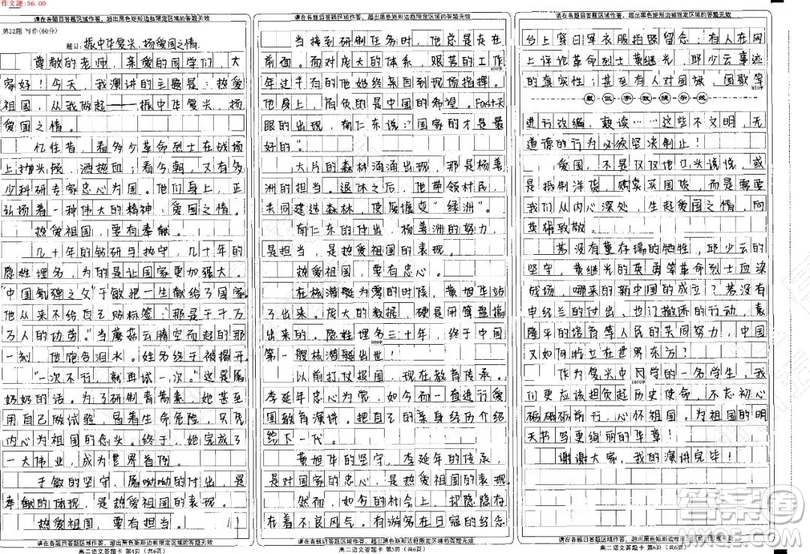 作文题:56.00
请在各题目答题区域作答，超出黑色矩形边框限定区域的答题无效
第22题 写作(60分)
题目: 振中华复兴，扬爱国之情
尊敬的老师，亲爱的同学们，大
家好！今天，我演讲的主题是：热爱
祖国，从我做起——振中华复兴，扬
爱国之情。
忆往昔，看多少革命烈士在战场
上抛头颅，洒热血；看今朝，又有多
少科研专家忠心为国。他们身上，正
弘扬着一种伟大的精神：爱国之情。
热爱祖国，要有奉献。
几十年的钻研与执守，几十年的
隐姓埋名，为的是让国家更加强大。
“中国氢弹之父”于敏把一生献给了国家。
他从来不给自己贴标签：那是千千万
万人的功劳。当蘑菇云腾空而起的那
一刻，他饱含泪水。
“一次不行，就再试一次。”这是屠
奶奶的话。为了研制青蒿素，她甚至
用自己做试验，冒着生命危险，只凭
内心为祖国的忠义。终于，她完成了
一大伟业，成为世界首例。
于敏的坚守，屠呦呦的付出，是
奉献的体现，是热爱祖国的表现。
热爱祖国，要有担当。
请在各题目答题区域作答，超出黑色矩形边框限定区域的答题无效
高二语文答题卡 第4页（共6页）
请在各题目答题区域作答，超出黑色矩形边框限定区域的答题无效
当接到研制任务时，他总是走在
前面。面对庞大的体系，艰苦的工作
年过半百的他始终来回到现场指挥。
他肩上，肩负的是中国的希望。Fast天
眼的出现，南仁东说：“国家的才是最
好的”。
大片的森林涌涌出现，那是杨善
洲的担当。退休之后，他带领村民，
共同建造森林，使荒堰变“绿洲”。
南仁东的付出，杨善洲的努力，
是担当，是热爱祖国的表现。
热爱祖国，要有忠心。
在核潜艇为零的时候，黄旭华站
了出来。庞大的数据，都是用算盘敲
出来的。隐姓埋名三十年，终于中国
第一艘核潜艇出世！
以前打仗报国，现今教育传承。
李延年忠心为党，如今而一直进行爱
国教育演讲，把自己的亲身经历介绍
给下一代。
黄旭华的坚守，李延年的传承，
是对国家的忠心，是热爱祖国的表现。
然而，如今的社会上，把隐隐存
在着不良风气。有游客网友在日留的经念
请在各题目答题区域作答，超出黑色矩形边框限定区域的答题无效
高二语文答题卡 第5页（共6页）
请在各题目答题区域作答，超出黑色矩形边框限定区域的答题无效
台上穿日军衣服拍照留念；有人在网
上诽谤革命烈士黄继光，邱少云事迹
的真实性；甚至有人对国旗，国歌等
进行改编，亵读……这些不文明，无
道德的行为必须坚决制止！
爱国，不是仅仅他口头谈谈，或
是抵制洋货，购卖买国货，而是需要
我们从内心深处，生起爱国之情，向
英雄致敬。
若没有董存瑞的牺牲，邱少云的
坚守，黄继光的英勇等革命烈士血染
战场，哪来的新中国的成立？若没有
申纪兰的付出，也门撤侨的行动，袁
隆平的培育等人民的共同努力，中国
又如何屹立在世界东方？
作为复兴中同学的一名学生，我
们更应该担负起历史使命，不忘初心
砥砺前行，心怀祖国，为祖国的明
天书写更绚丽的华章！
谢谢大家，我的演讲完毕！
请在各题目答题区域作答，超出黑色矩形边框限定区域的答题无效
高二语文答题卡 第6页（共6页）